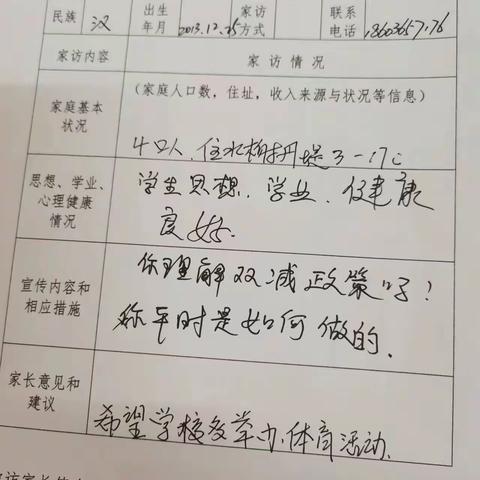 民族 汉 出生年月 2013.12.25 家访方式 联系电话
家访内容 家访情况
家庭基本状况 (家庭人口数，住址，收入来源与状况等信息)
4口人，住水榭丹堤3-17
思想、学业、心理健康情况 学生思想、学业、健康
良好.
宣传内容和相应措施 你理解双减政策吗？
你平时是如何做的.
家长意见和建议
希望学校多举办体育活动.